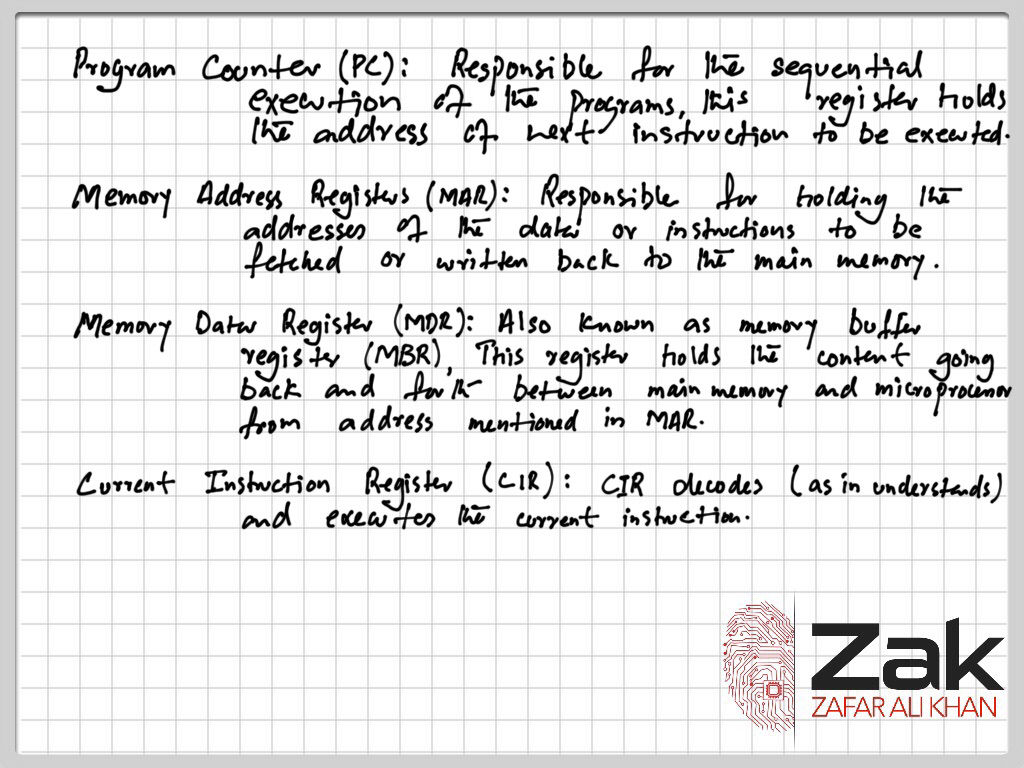 Program Counter (PC): Responsible for the sequential
execution of the programs, this register holds
the address of next instruction to be executed.
Memory Address Registers (MAR): Responsible for holding the
addresses of the data or instructions to be
fetched or written back to the main memory.
Memory Data Register (MDR): Also known as memory buffer
register (MBR), This register holds the content going
back and forth between main memory and microprocessor
from address mentioned in MAR.
Current Instruction Register (CIR): CIR decodes (as in understands)
and executes the current instruction.
Zak
ZAFAR ALI KHAN